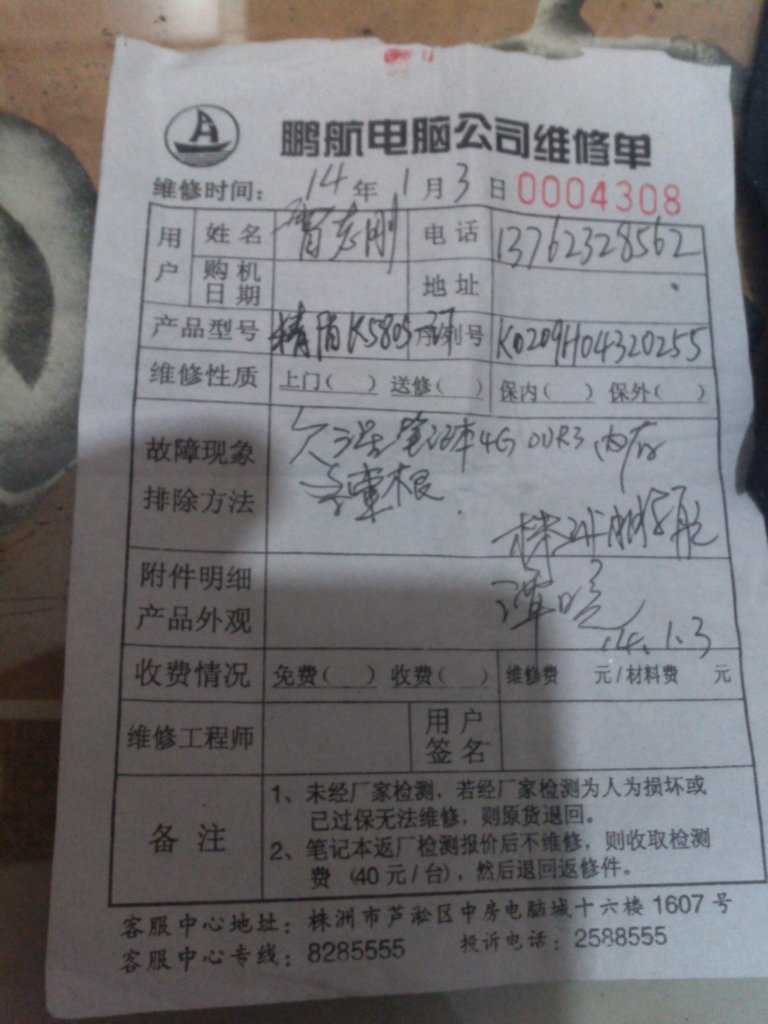 鹏航电脑公司维修单
维修时间: 14年1月3日 0004308
用户 姓名 志刚 电话 13762328562
购机日期 地址
产品型号 精盾K580S 序列号 K0209H04320255
维修性质 上门( ) 送修( ) 保内( ) 保外( )
故障现象 欠 笔记本4G DDR3 内存
排除方法 壹根
株洲鹏航
附件明细
产品外观 谭
14.1.3
收费情况 免费( ) 收费( ) 维修费 元/材料费 元
维修工程师 用户签名
备注 1、未经厂家检测，若经厂家检测为人为损坏或
已过保无法维修，则原货退回。
2、笔记本返厂检测报价后不维修，则收取检测
费（40元/台），然后退回返修件。
客服中心地址：株洲市芦淞区中房电脑城十六楼1607号
客服中心专线：8285555 投诉电话：2588555